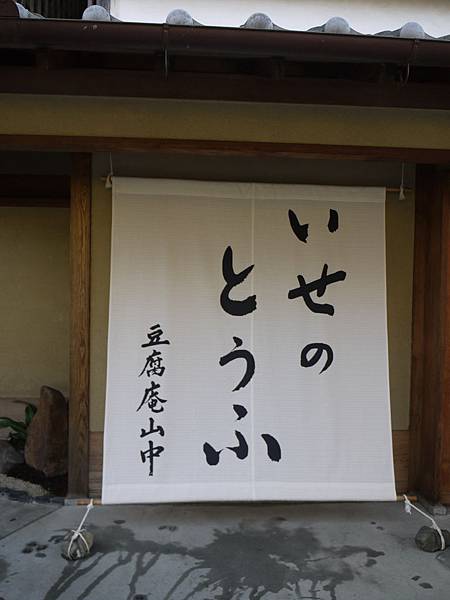 いせの
とうふ
豆腐庵山中